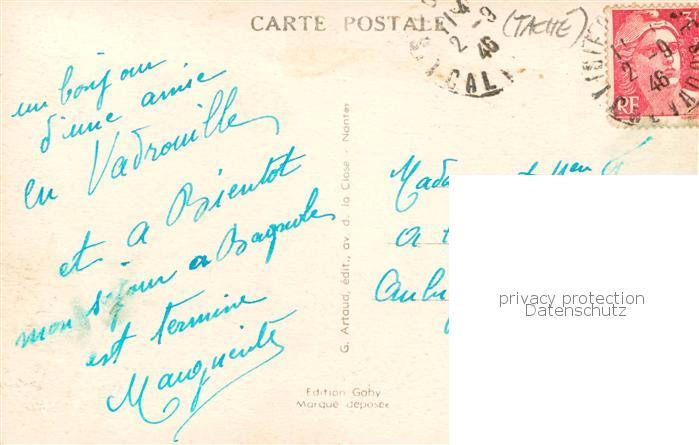 CARTE POSTALE
(TACHÉ)
2 -9
46
CAL
2 -9
46
RF
un bonjour
d'une amie
en Vadrouille
et a Bientot
mon séjour a Bagnoles
est terminé
Marguerite
G. Artaud, édit., av. d. la Close - Nantes
Edition Gaby
Marque déposée
Mada
a
privacy protection
Datenschutz